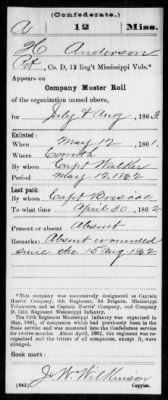 (Confederate.)
A 12 Miss.
Anderson
Pvt, Co. D, 12 Reg't Mississippi Vols.*
Appears on
Company Muster Roll
of the organization named above,
for July & Aug, 1862
Enlisted:
When May 12, 1861.
Where Corinth
By whom Capt Walker
Period May 12, 1862
Last paid:
By whom Capt
To what time April 30, 1862
Present or absent Absent
Remarks: Absent wounded
since the 15 Aug 1862
*This company was successively designated as Captain
Harris' Company, 6th Regiment, 3d Brigade, Mississippi
Volunteers, and as Captain Harris' Company, and Company
D, 12th Regiment Mississippi Infantry.
The 12th Regiment Mississippi Infantry was organized in
May, 1861, of companies which had previously been in the
State service and were mustered into the Confederate service
for twelve months. About April, 1862, the regiment was
organized and the letters of all companies, except D, were
changed.
Book mark:
J. W. Wilkinson
(642) Copyist.